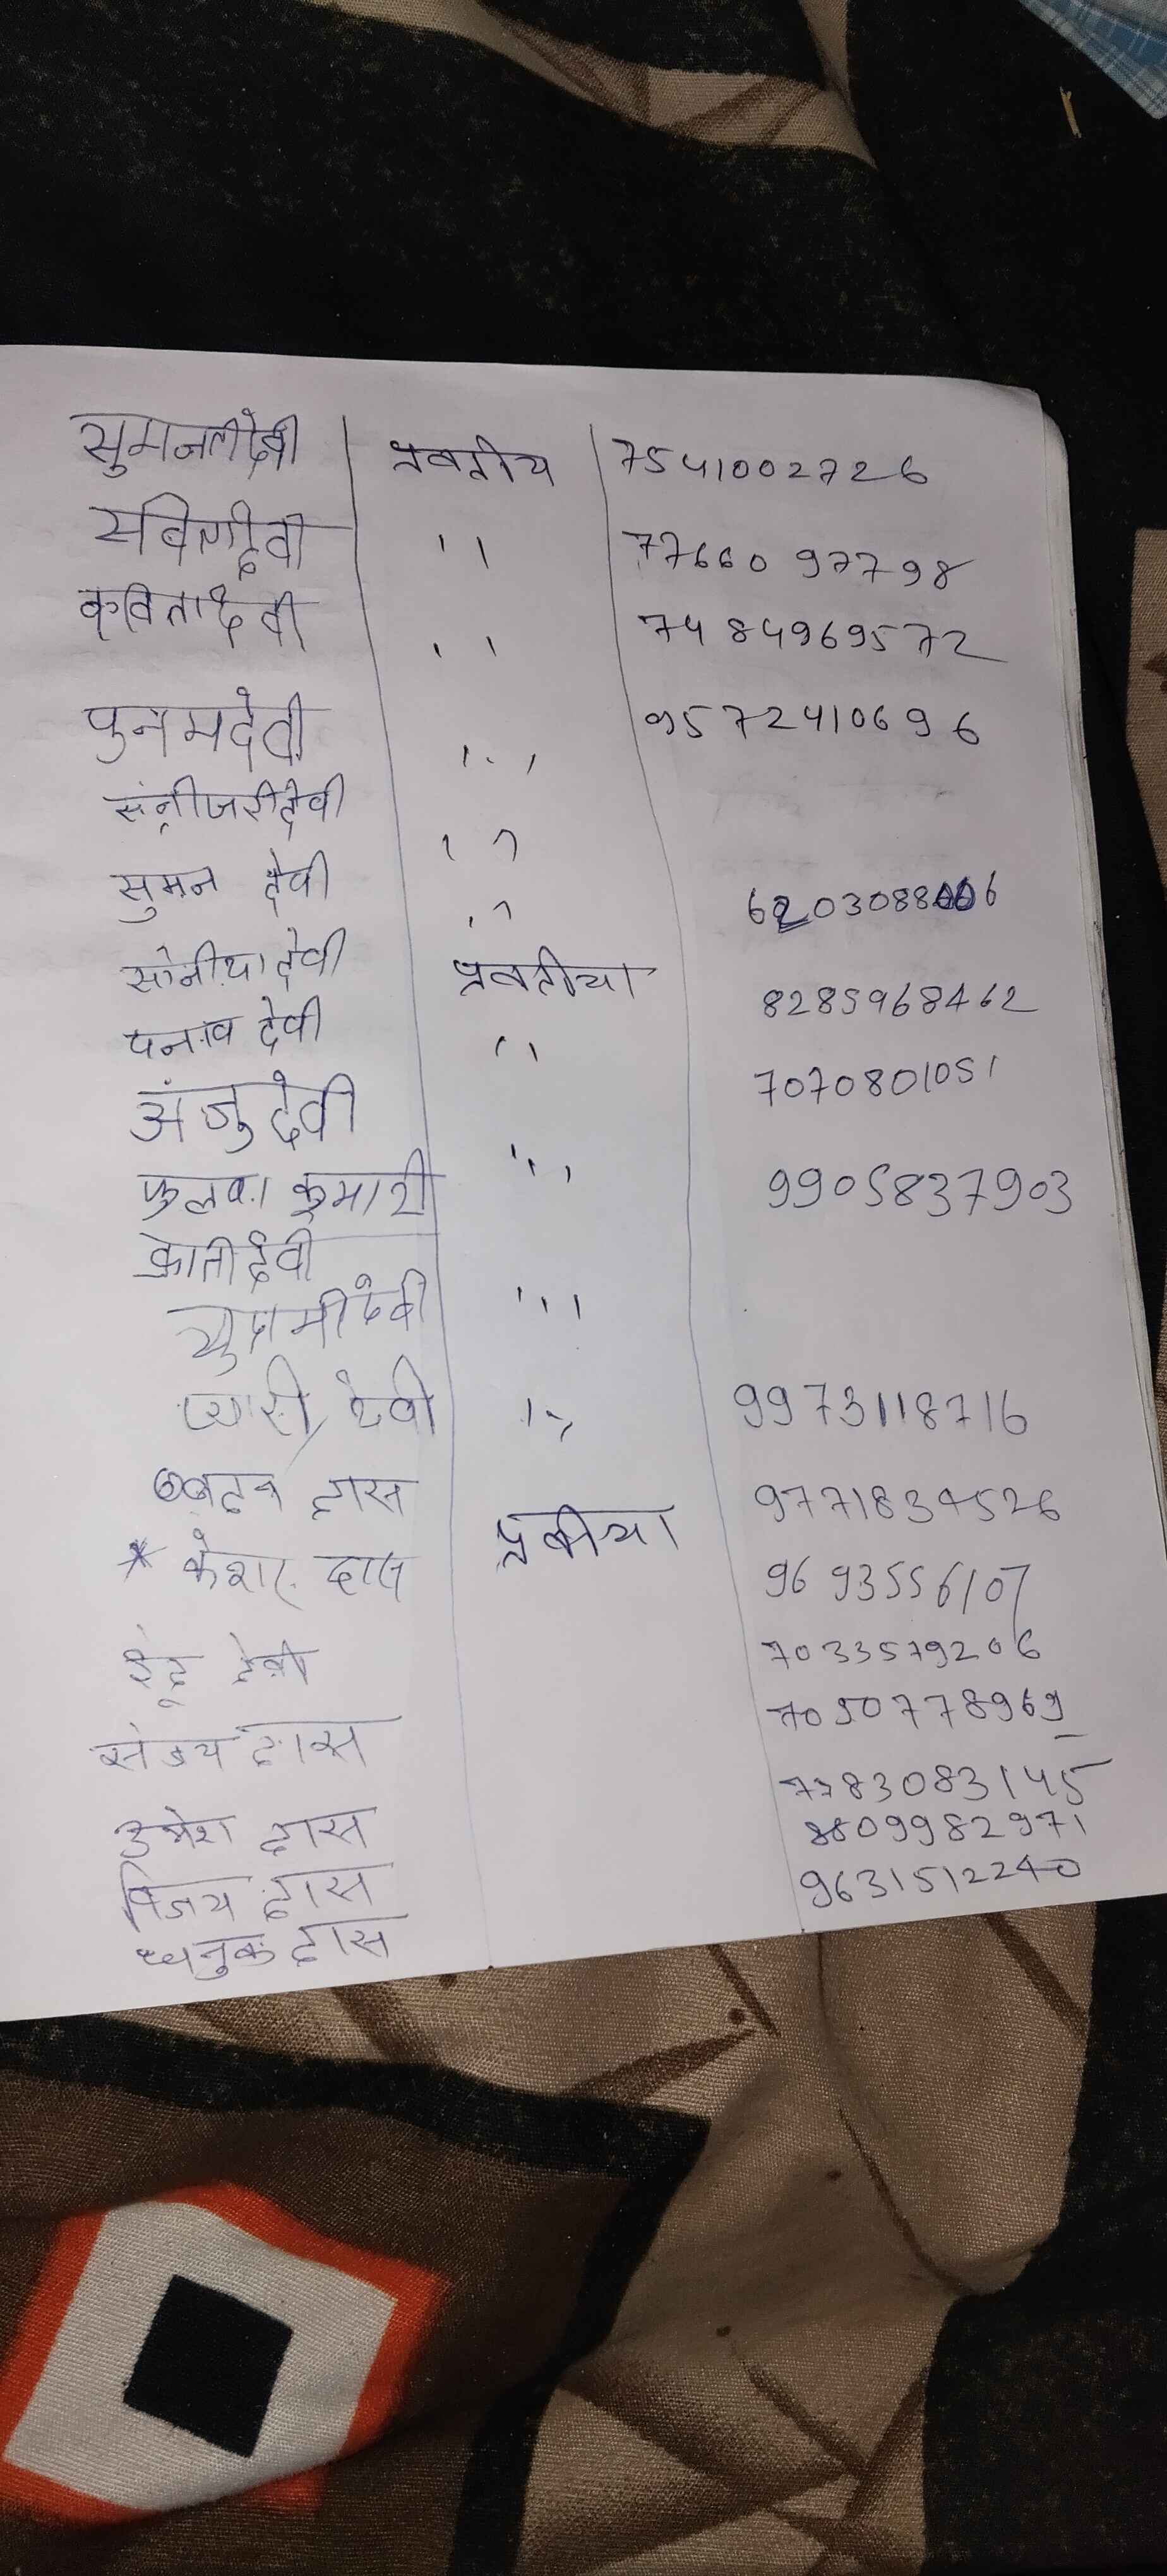 सुमनतीदेवी प्रवतीय 7541002726
सविणदेवी '' 77660 97798
कवितादेवी '' 7484969572
पुनमदेवी '' 9572410696
देवी ''
सुमन देवी '' 6203088006
सोनीया देवी प्रवतीया 8285968462
देवी '' 7070801051
अंजु देवी
कुमारी ''' 9905837903
देवी
देवी '''
प्यारी देवी '' 9973118716
दास 9771834526
* केशर दास 9693556107
इंदू देवी 7033579206
संजय दास 7050778969
उमेश दास 7783083145
विजय दास 8809982971
धनुक दास 9631512240